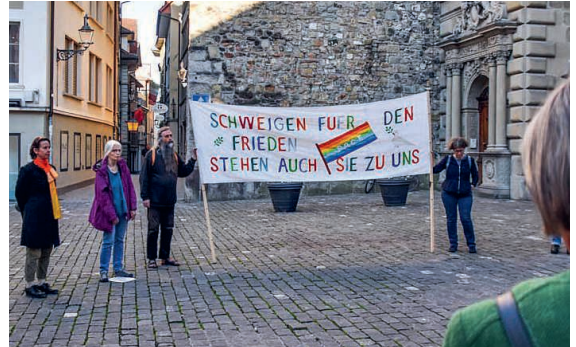 SCHWEIGEN FUER DEN
FRIEDEN
STEHEN AUCH SIE ZU UNS